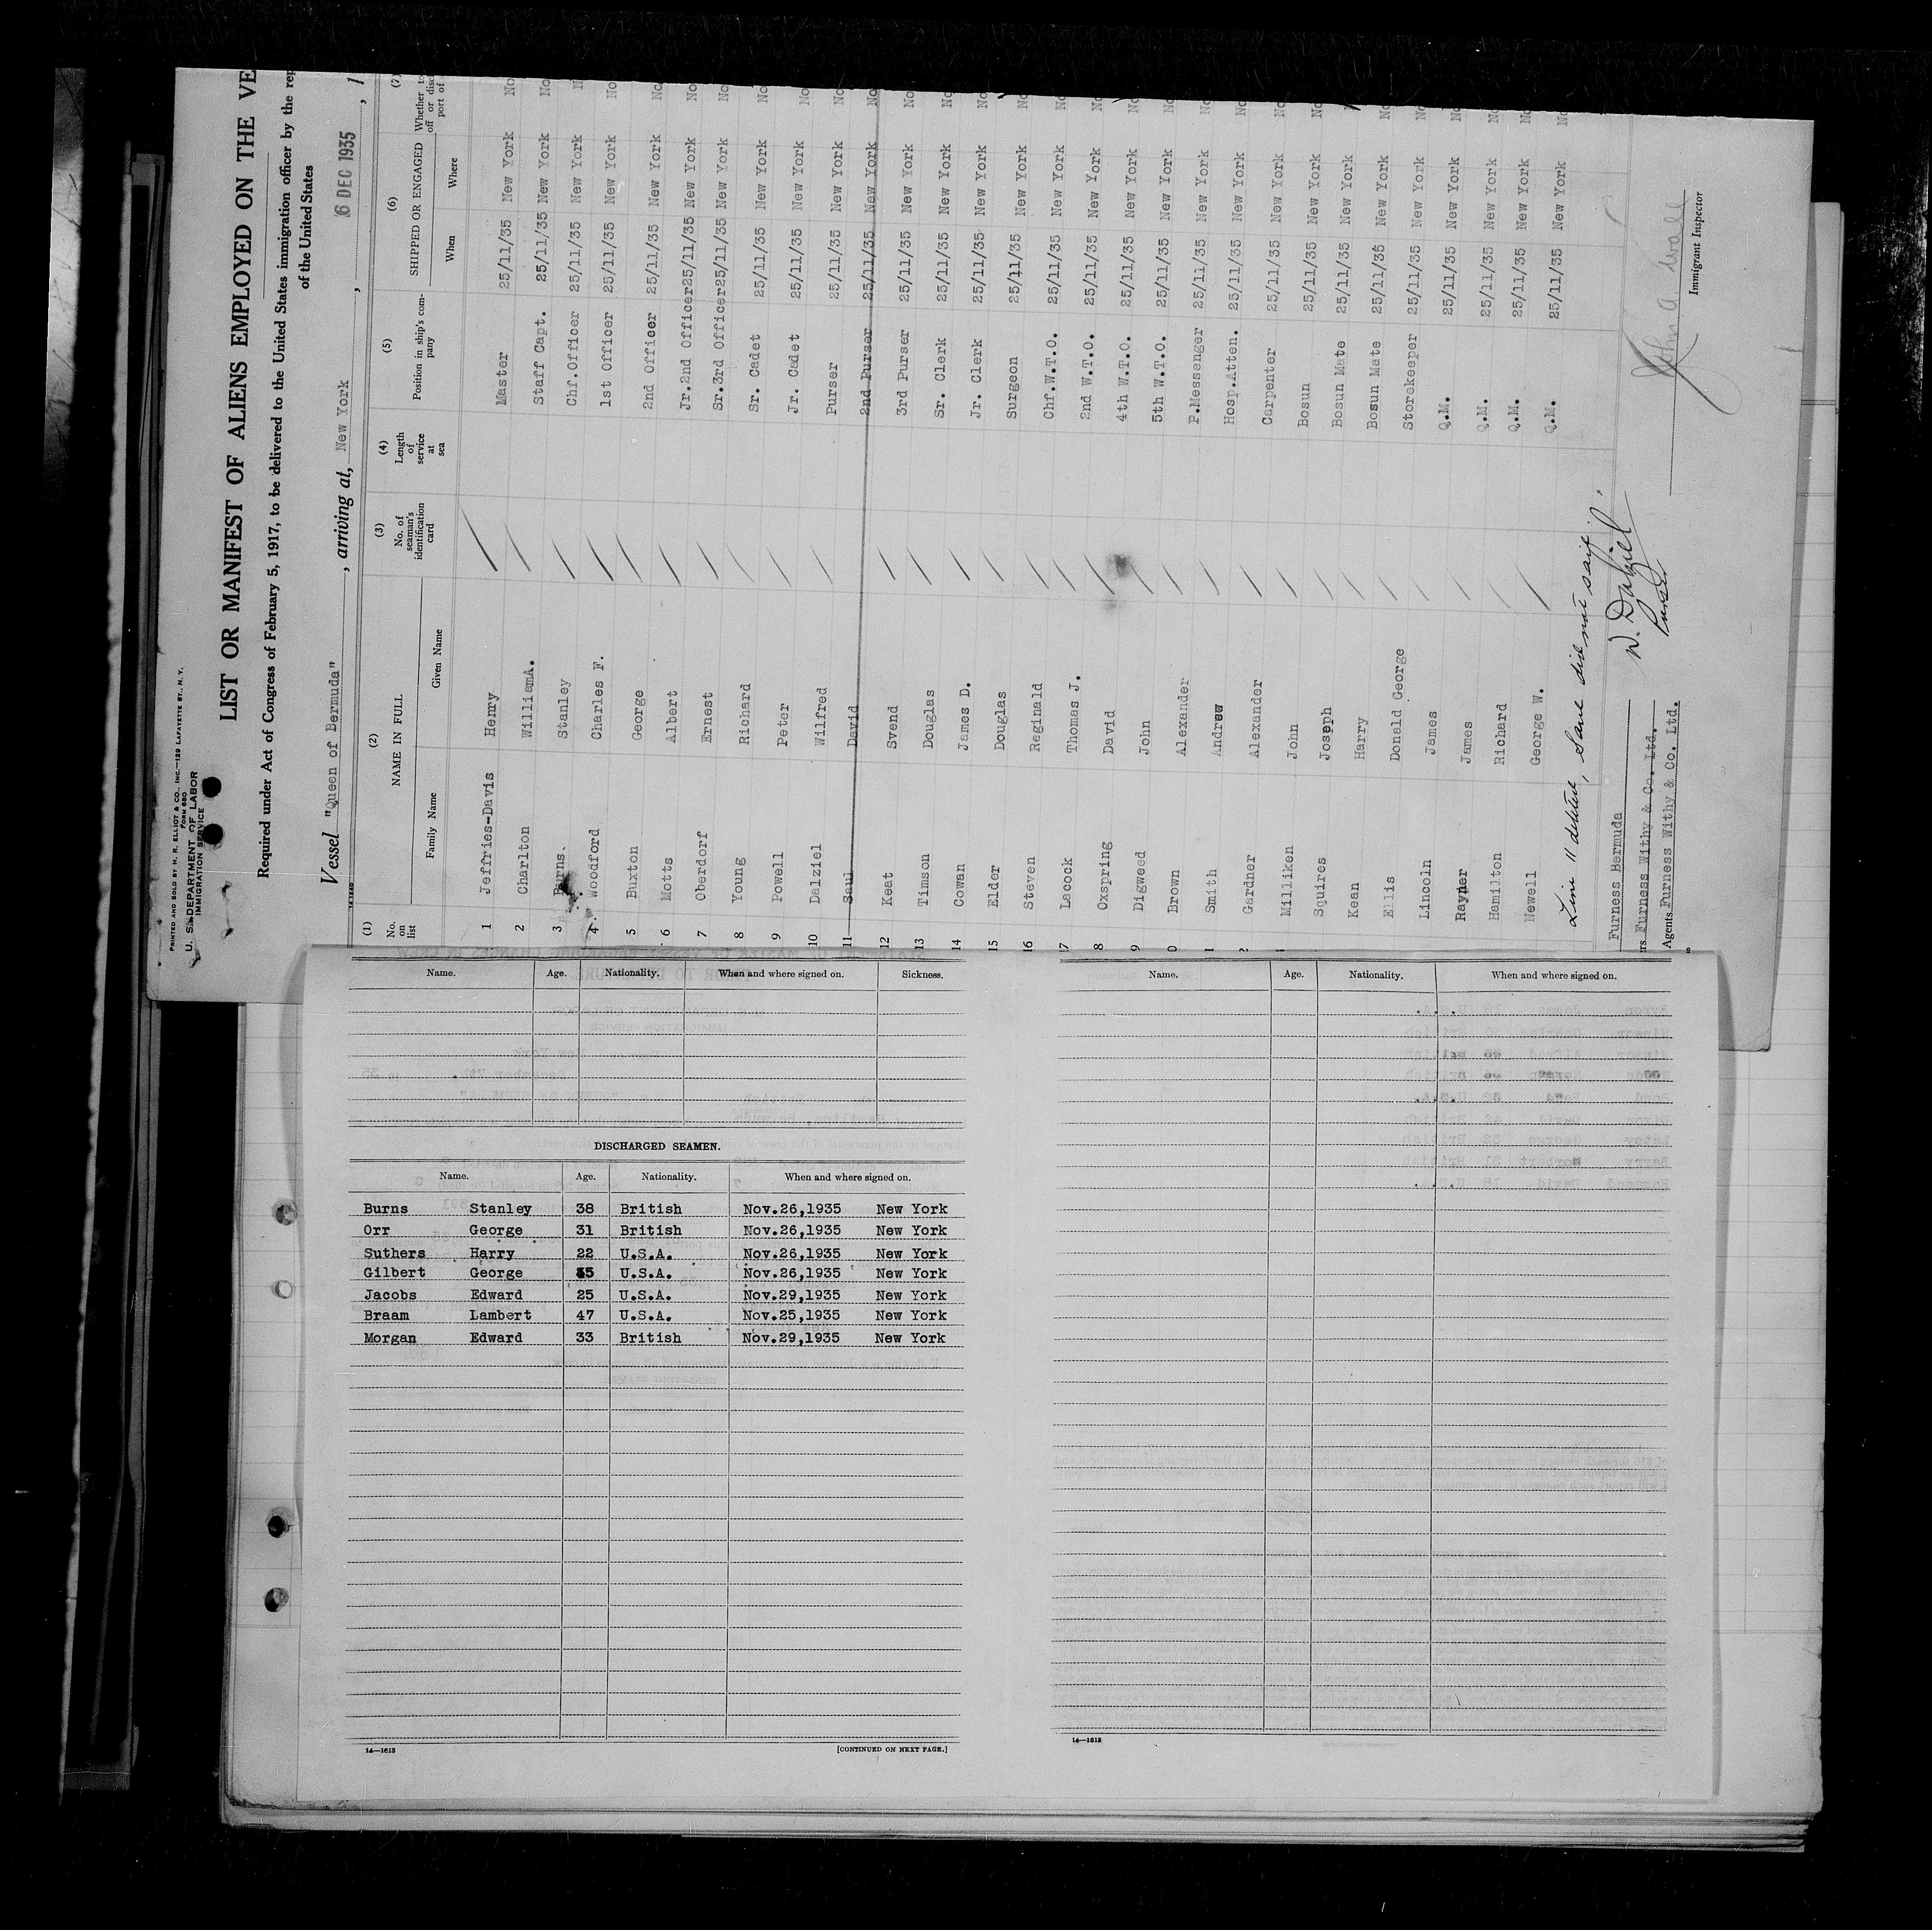 PRINTED AND SOLD BY H. R. ELLIOT & CO., INC.—129 LAFAYETTE ST., N. Y.
FORM 680
U. S. DEPARTMENT OF LABOR
IMMIGRATION SERVICE
LIST OR MANIFEST OF ALIENS EMPLOYED ON THE VE
Required under Act of Congress of February 5, 1917, to be delivered to the United States immigration officer by the rep
of the United States
Vessel "Queen of Bermuda", arriving at, New York, 6 DEC 1935, 1
(1) (2) (3) (4) (5) (6) (7)
No. on list NAME IN FULL No. of seaman's identification card Length of service at sea Position in ship's company SHIPPED OR ENGAGED Whether to off or disc port of
Family Name Given Name When Where
1 Jeffries-Davis Henry Master 25/11/35 New York No
2 Charlton WilliamA. Staff Capt. 25/11/35 New York No
3 Burns. Stanley Chf.Officer 25/11/35 New York N
4 Woodford Charles F. 1st Officer 25/11/35 New York No
5 Buxton George 2nd Officer 25/11/35 New York No
6 Motts Albert Jr.2nd Officer25/11/35 New York No
7 Oberdorf Ernest Sr.3rd Officer25/11/35 New York No
8 Young Richard Sr. Cadet 25/11/35 New York No
9 Powell Peter Jr. Cadet 25/11/35 New York No
10 Dalziel Wilfred Purser 25/11/35 New York No
11 Saul David 2nd Purser 25/11/35 New York No
12 Keat Svend 3rd Purser 25/11/35 New York No
13 Timson Douglas Sr. Clerk 25/11/35 New York No
14 Cowan James D. Jr. Clerk 25/11/35 New York No
15 Elder Douglas Surgeon 25/11/35 New York No
16 Steven Reginald Chf.W.T.O. 25/11/35 New York No
17 Lacock Thomas J. 2nd W.T.O. 25/11/35 New York No
8 Oxspring David 4th W.T.O. 25/11/35 New York No
9 Digweed John 5th W.T.O. 25/11/35 New York No
0 Brown Alexander P.Messenger 25/11/35 New York No
1 Smith Andrew Hosp.Atten. 25/11/35 New York No
2 Gardner Alexander Carpenter 25/11/35 New York No
Milliken John Bosun 25/11/35 New York No
Squires Joseph Bosun Mate 25/11/35 New York No
Kean Harry Bosun Mate 25/11/35 New York No
Ellis Donald George Storekeeper 25/11/35 New York No
Lincoln James Q.M. 25/11/35 New York No
Rayner James Q.M. 25/11/35 New York No
Hamilton Richard Q.M. 25/11/35 New York No
Newell George W. Q.M. 25/11/35 New York No
Line 11 deleted, Saul did not sail.
Furness Bermuda
rs Furness Withy & Co. Ltd.
Agents Furness Withy & Co. Ltd.
W. Dalziel
Purser
John A Wall
Immigrant Inspector
Name. Age. Nationality. When and where signed on. Sickness.
DISCHARGED SEAMEN.
Name. Age. Nationality. When and where signed on.
Burns Stanley 38 British Nov.26,1935 New York
Orr George 31 British Nov.26,1935 New York
Suthers Harry 22 U.S.A. Nov.26,1935 New York
Gilbert George 35 U.S.A. Nov.26,1935 New York
Jacobs Edward 25 U.S.A. Nov.29,1935 New York
Braam Lambert 47 U.S.A. Nov.25,1935 New York
Morgan Edward 33 British Nov.29,1935 New York
14—1613
[CONTINUED ON NEXT PAGE.]
Name. Age. Nationality. When and where signed on.
14—1613